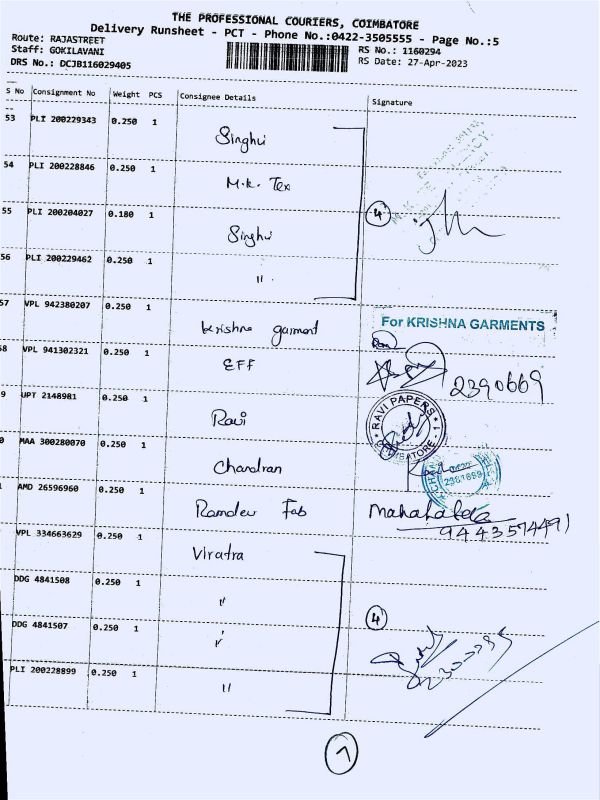 THE PROFESSIONAL COURIERS, COIMBATORE
Delivery Runsheet - PCT - Phone No.:0422-3505555 - Page No.:5
Route: RAJASTREET RS No.: 1160294
Staff: GOKILAVANI RS Date: 27-Apr-2023
DRS No.: DCJB116029405
S No Consignment No Weight PCS Consignee Details Signature
53 PLI 200229343 0.250 1 Singhvi
54 PLI 200228846 0.250 1 M.K. Tex
55 PLI 200204027 0.180 1 Singhvi 4
56 PLI 200229462 0.250 1 "
57 VPL 942380207 0.250 1 krishna garment For KRISHNA GARMENTS
8 VPL 941302321 0.250 1 EFF 2390669
9 UPT 2148981 0.250 1 Ravi RAVI PAPERS COIMBATORE-1
0 MAA 300280070 0.250 1 Chandran
AMD 26596960 0.250 1 Ramdev Fab
9443574491
VPL 334663629 0.250 1 Viratra
DDG 4841508 0.250 1 "
DDG 4841507 0.250 1 " 4
PLI 200228899 0.250 1 "